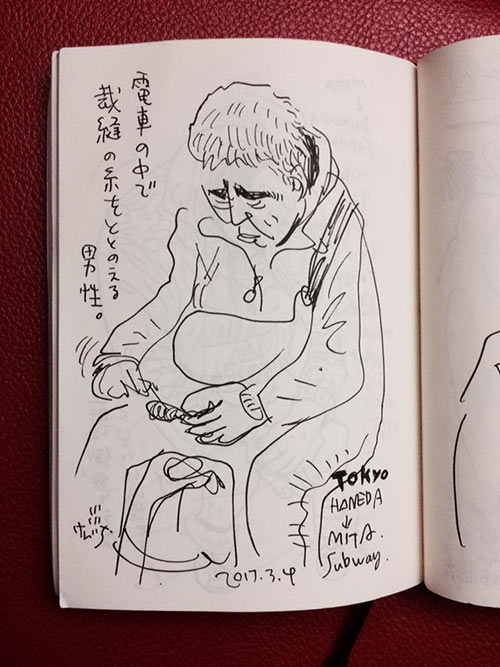 電車の中で
裁縫の糸をととのえる
男性。
Tokyo
HANEDA
↓
MITA.
Subway.
2017.3.4